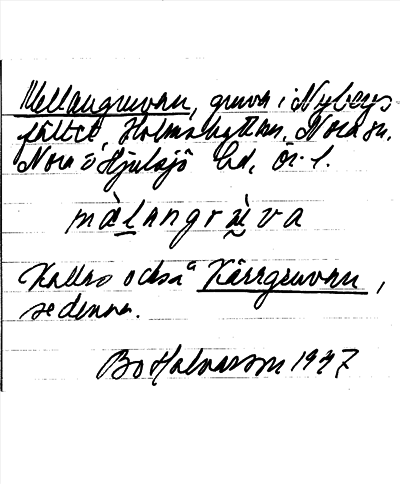 Mellangruvan, gruva i Nybergs-
fältet, Holmshyttan, Nora sn.
Nora o Hjulsjö bd, Ör. l.
màlangrùva
Kallas också Kärrgruvan,
se denna.
Bo Halvarsson 1937